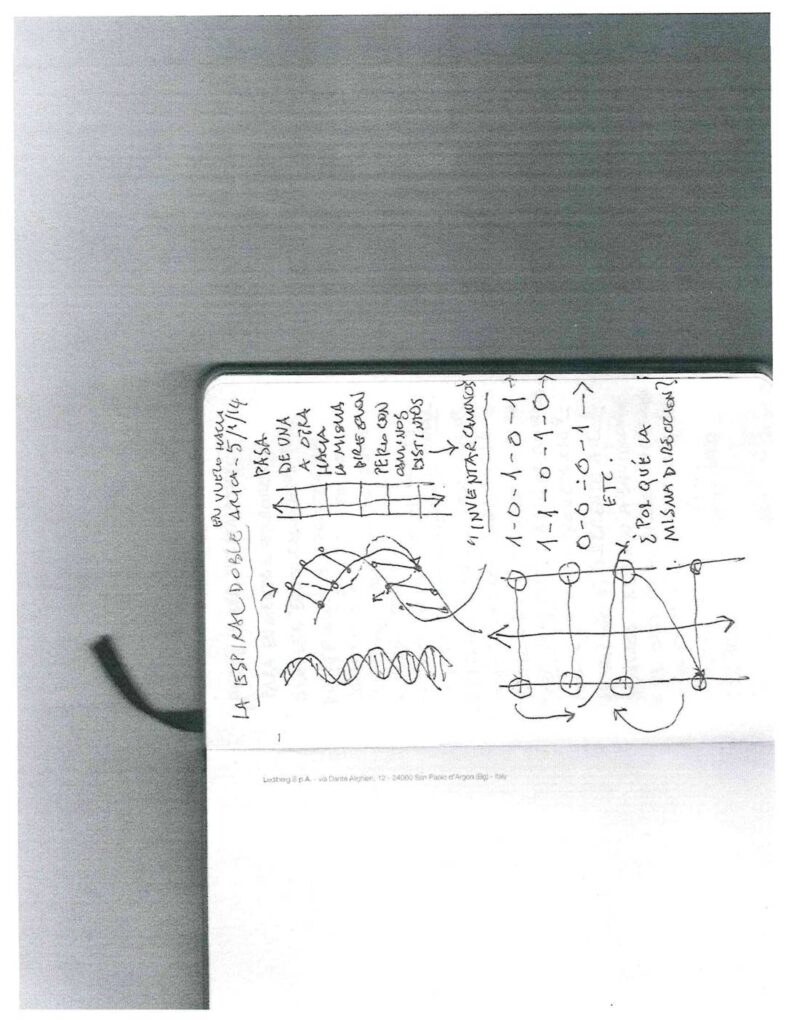 EN VUELO HACIA
ARICA - 5/1/14
LA ESPIRAL DOBLE
PASA
DE UNA
A OTRA
HACIA
LA MISMA
DIRECCIÓN
PERO CON
CAMINOS
DISTINTOS
"INVENTAR CAMINOS"
1-0-1-0-1→
1-1-0-1-0→
0-0-0-1→
ETC.
¿POR QUÉ LA
MISMA DIRECCIÓN?
1
Lediberg S.p.A. - via Dante Alighieri, 12 - 24060 San Paolo d'Argon (Bg) - Italy